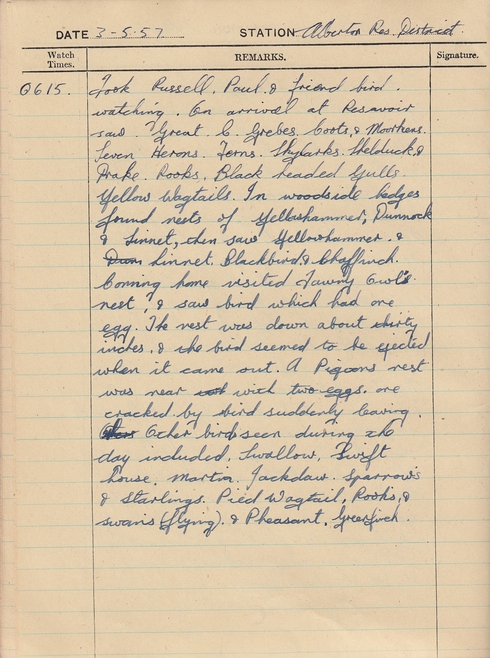 DATE 3-5-57. STATION Alberton Res. District.
Watch Times. REMARKS. Signature.
0615. Took Russell, Paul & friend bird
watching. On arrival at Resavoir
saw Great C. Grebes. Coots, & Moorhens.
Seven Herons. Terns. Skylarks. Shelduck &
Drake. Rooks. Black headed Gulls.
Yellow Wagtails. In woodside hedges
found nests of Yellowhammer, Dunnock
& Linnet, then saw Yellowhammer. &
Dun linnet. Blackbird, & Chaffinch.
Comming home visited Tawny Owl's
nest, & saw bird which had one
egg. The nest was down about thirty
inches, & the bird seemed to be ejected
when it came out. A Pigeons nest
was near with two eggs. one
cracked by bird suddenly leaving.
Other birds seen during the
day included, Swallow, Swift
house, Martin, Jackdaw. Sparrows
& Starlings. Pied Wagtail, Rooks, &
swans (flying). & Pheasant, Greenfinch.